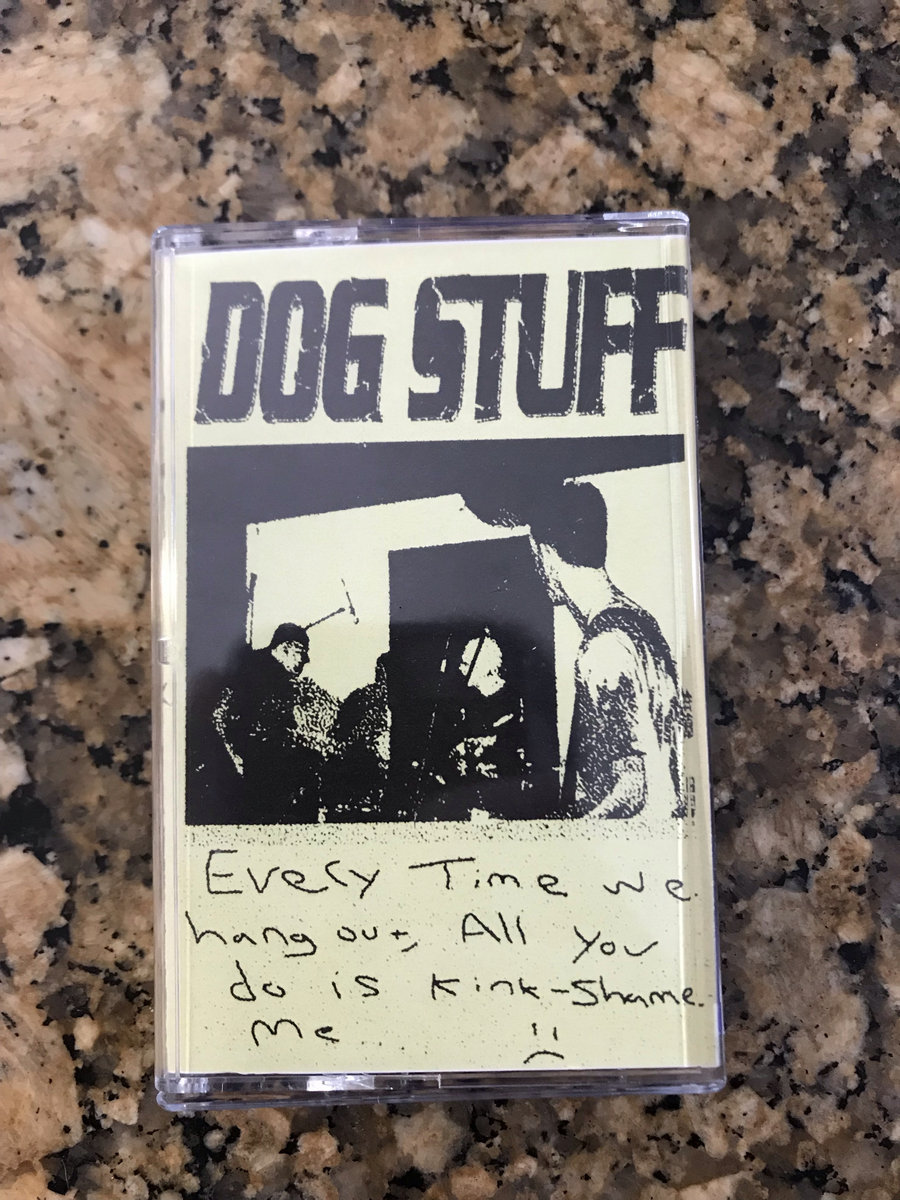 DOG STUFF
Every Time we
hang out, All you
do is Kink-Shame
Me... :(